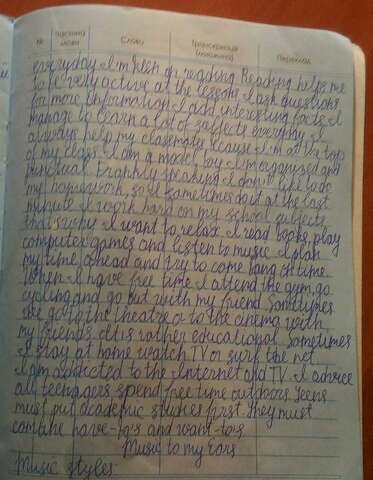 № Частини мови Слово Транскрипція (вимова) Переклад
everyday. I'm keen on reading. Reading helps me
to be very active at the lessons. I ask questions
for more information. I add interesting facts. I
manage to learn a lot of subjects everyday. I
always help my classmates because I'm at the top
of my class. I am a model boy. I'm organized and
punctual. Frankly speaking I don't like to do
my homework, so I sometimes do it at the last
minute. I work hard on my school subjects
that's why I want to relax. I read books, play
computer games and listen to music. I plan
my time ahead and try to come on time.
When I have free time I attend the gym, go
cycling and go out with my friend. Sometimes
we go to the theatre or to the cinema with
my friends. It is rather educational. Sometimes
I stay at home watch TV or surf the net.
I am addicted to the Internet and TV. I advice
all teenagers spend free time outdoors. Teens
must put academic studies first. They must
combine have-to's and want-to's.
Music to my Ears
Music styles: